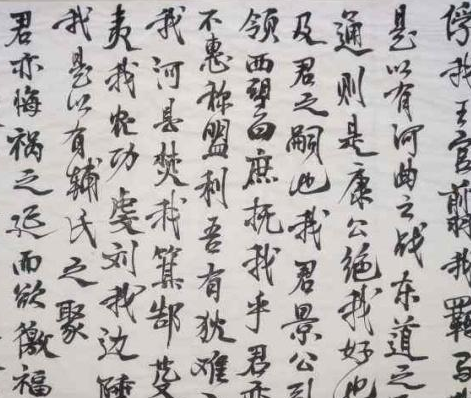 俘我王官翦我羁马
是以有河曲之战东道之
通则是康公绝我好也
及君之嗣也我君景公引
领西望曰庶抚我乎君亦
不惠称盟利吾有狄难
我河县焚我箕郜芟
夷我农功虔刘我边陲
我是以有辅氏之聚
君亦悔祸之延而欲徼福